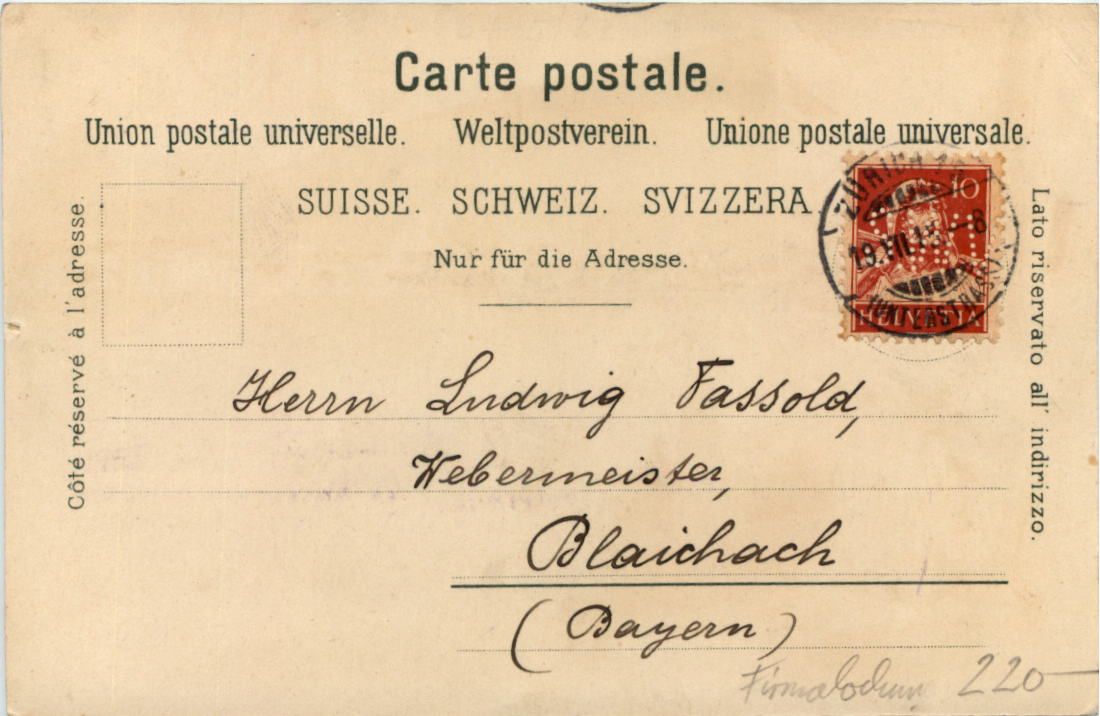 Carte postale.
Union postale universelle. Weltpostverein. Unione postale universale.
SUISSE. SCHWEIZ. SVIZZERA
Nur für die Adresse.
Côté réservé à l'adresse.
Lato riservato all' indirizzo.
10
HELVETIA
ZÜRICH
19.VII.15.-8
(UNTERSTRASS)
Herrn Ludwig Fassold,
Webermeister,
Blaichach
(Bayern)
220-